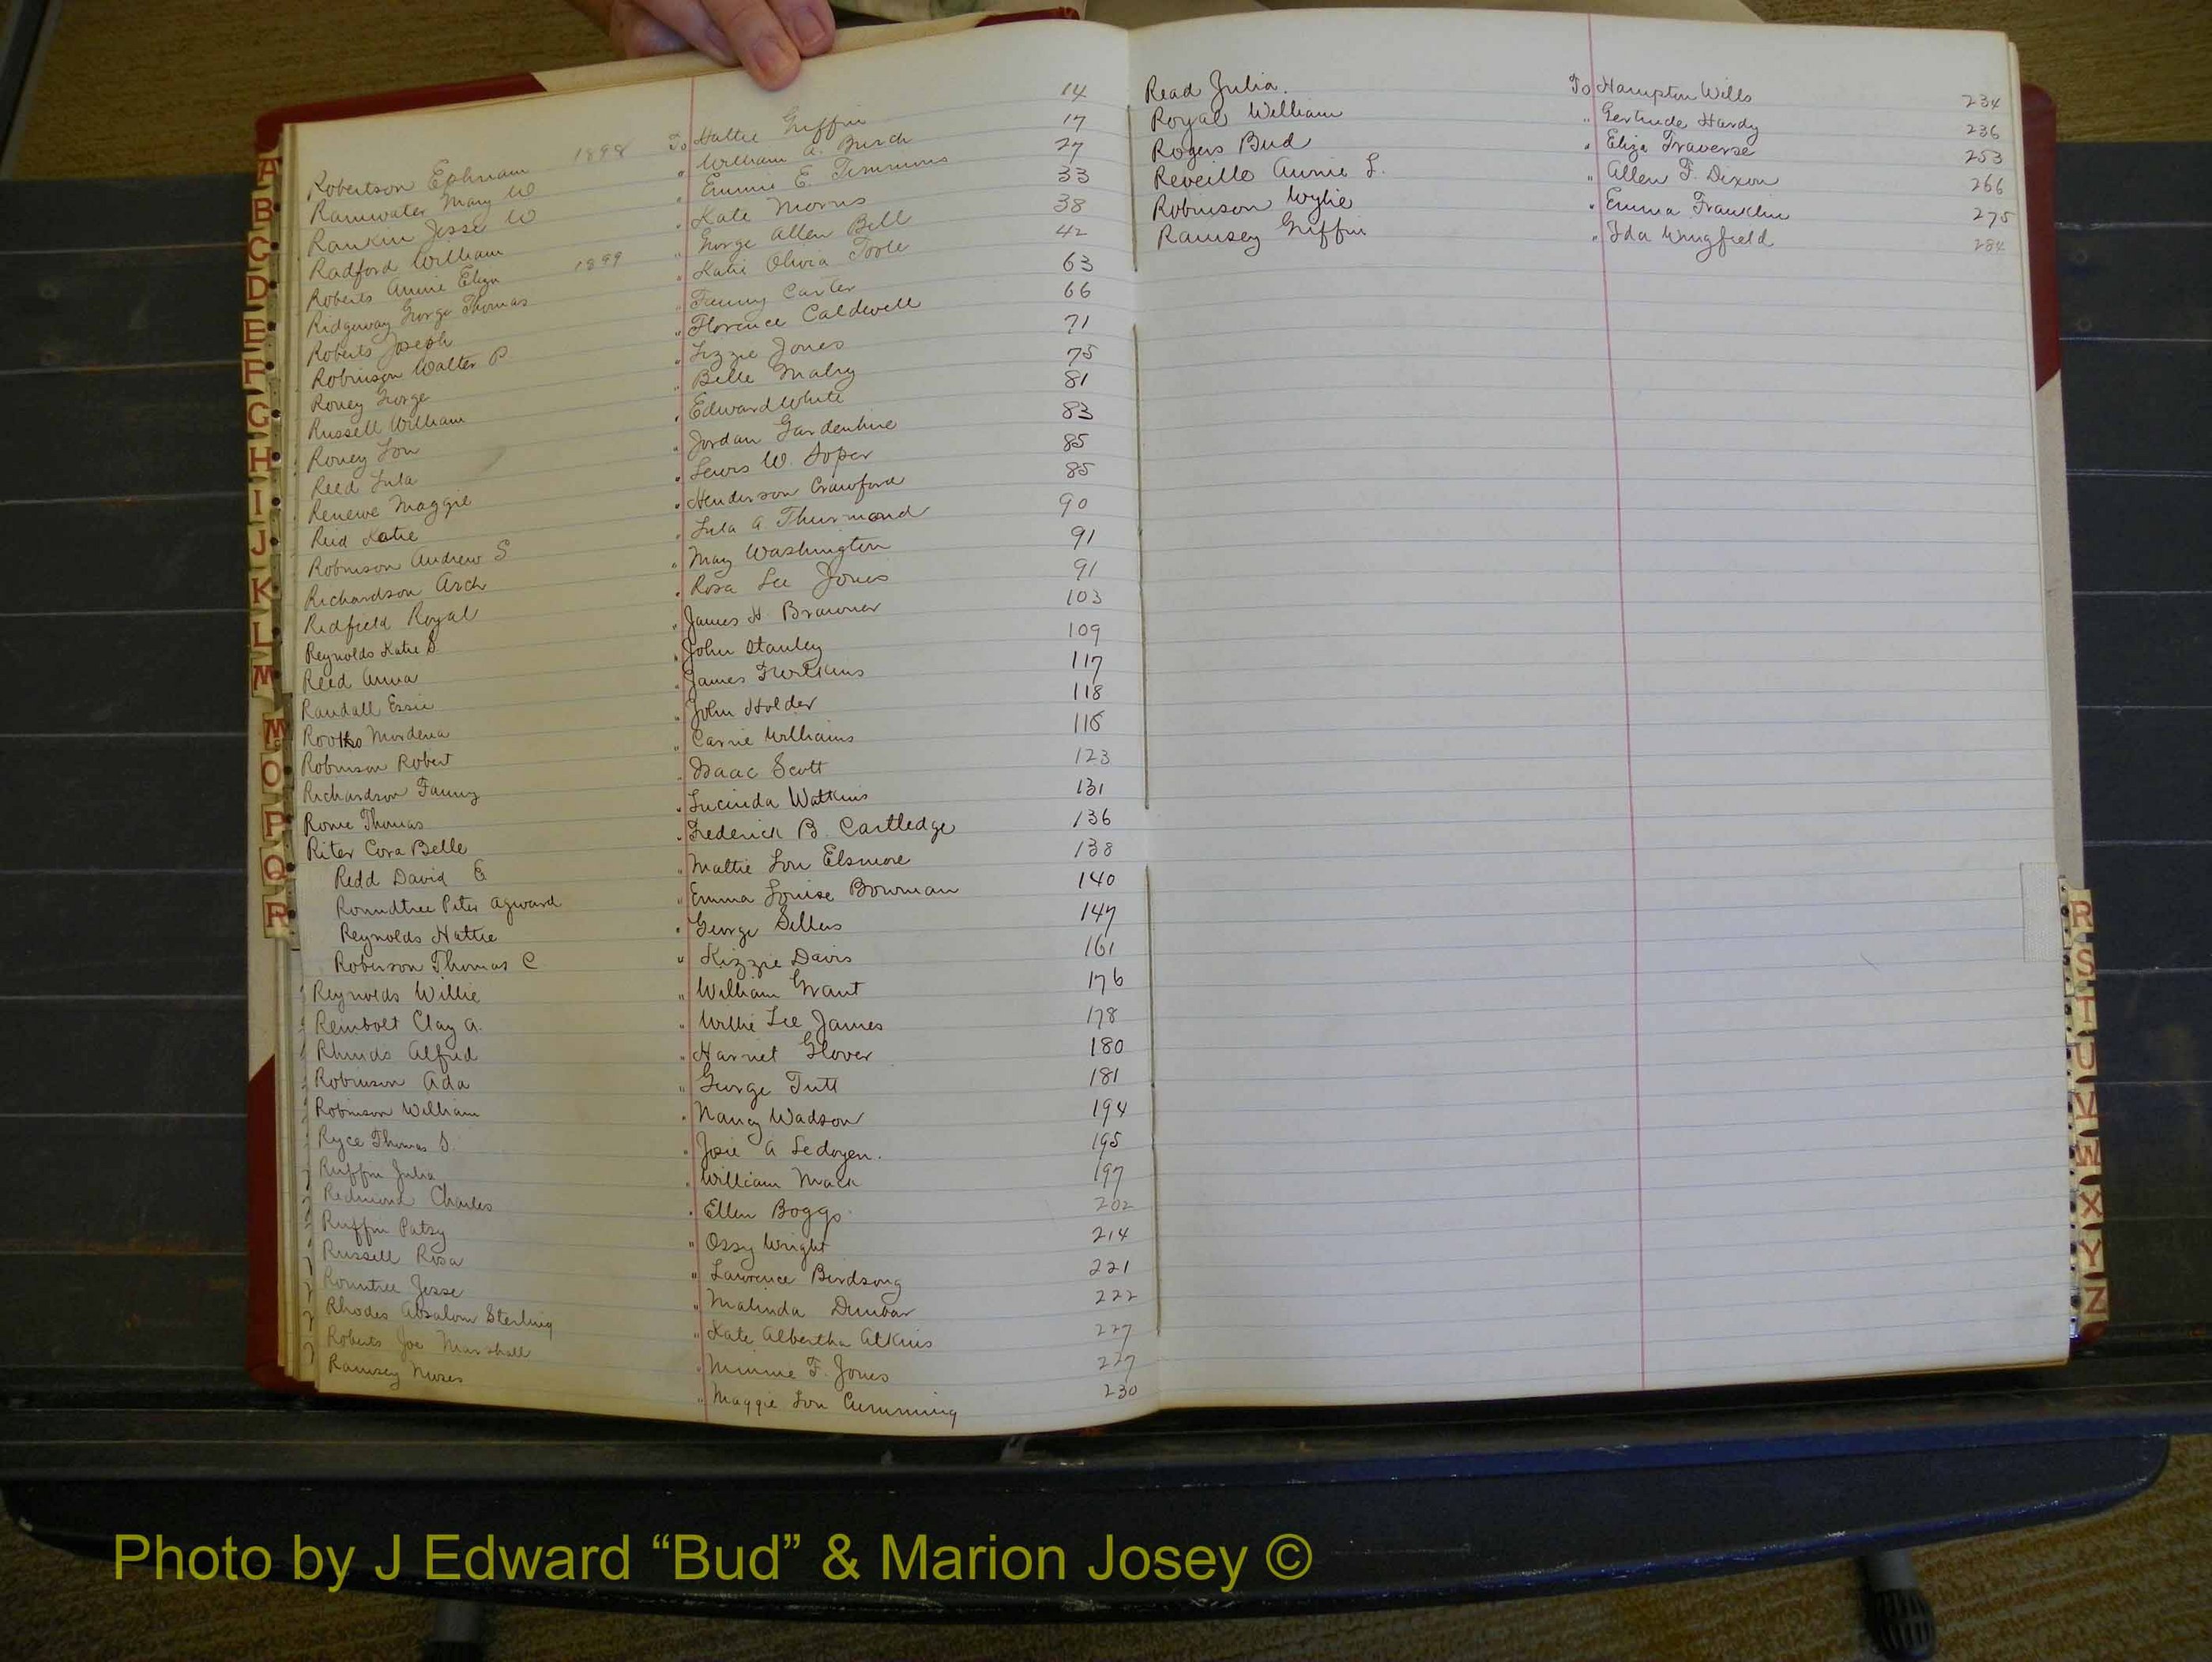 Robertson Ephriam 1898 To Hattie Griffin 14
Rainwater Mary W " William A. Burch 17
Rankin Jesse W " Emmie E. Timmons 27
Radford William " Kate Morris 33
Roberts Annie Eliza 1899 " George Allen Bell 38
Ridgeway George Thomas " Katie Olivia Toole 42
Roberts Joseph " Fanny Carter 63
Robinson Walter P " Florence Caldwell 66
Roney George " Lizzie Jones 71
Russell William " Belle Malry 75
Roney Lou " Edward White 81
Reed Lula " Jordan Gardenhire 83
Renewe Maggie " Lewis W. Soper 85
Reid Katie " Henderson Crawford 85
Robinson Andrew S " Lula A Thurmond 90
Richardson Arch " May Washington 91
Redfield Royal " Rosa Lee Jones 91
Reynolds Katie S. " James H. Brawner 103
Reed Anna " John Stanley 109
Randall Essie " James 117
Mordena " John Holder 118
Robinson Robert " Carrie Williams 118
Richardson Fanny " Isaac Scott 123
Rowe Thomas " Lucinda Watkins 131
Riter Cora Belle " Frederick B. Cartledge 136
Redd David E " Mattie Lou Elsmore 138
Roundtree Peter Agward " Emma Louise Bowman 140
Reynolds Hattie " George Sellers 147
Roberson Thomas C " Kizzie Davis 161
Reynolds Willie " William Grant 176
Reinbolt Clay A. " Willie Lee James 178
Rhinds Alfred " Harriet Glover 180
Robinson Ada " George Tutt 181
Robinson William " Nancy Wadson 194
Ryce Thomas S. " Josie A Ledoyen. 195
Ruffin Julia " William Mack 197
Redmond Charles " Ellen Boggs 202
Ruffin Patsy " Ossy Wright 214
Russell Rosa " Lawrence Birdsong 221
Rountree Jesse " Malinda Dunbar 222
Rhodes Absalom Sterling " Kate Albertha Atkins 227
Roberts Joe Marshall " Minnie F. Jones 227
Ramsey Moses " Maggie Lou Cumming 230
Read Julia. To Hampton Wills 234
Royal William " Gertrude Hardy 236
Rogers Bud " Eliza Traverse 253
Reveille Annie L. " Allen F. Dixon 266
Robinson Wylie " Emma Franklin 275
Ramsey Griffin " Ida Wingfield 284
A
B
C
D
E
F
G
H
I
J
K
L
M
Mc
O
P
Q
R
R
S
T
U
V
W
X
Y
Z
Photo by J Edward “Bud” & Marion Josey ©